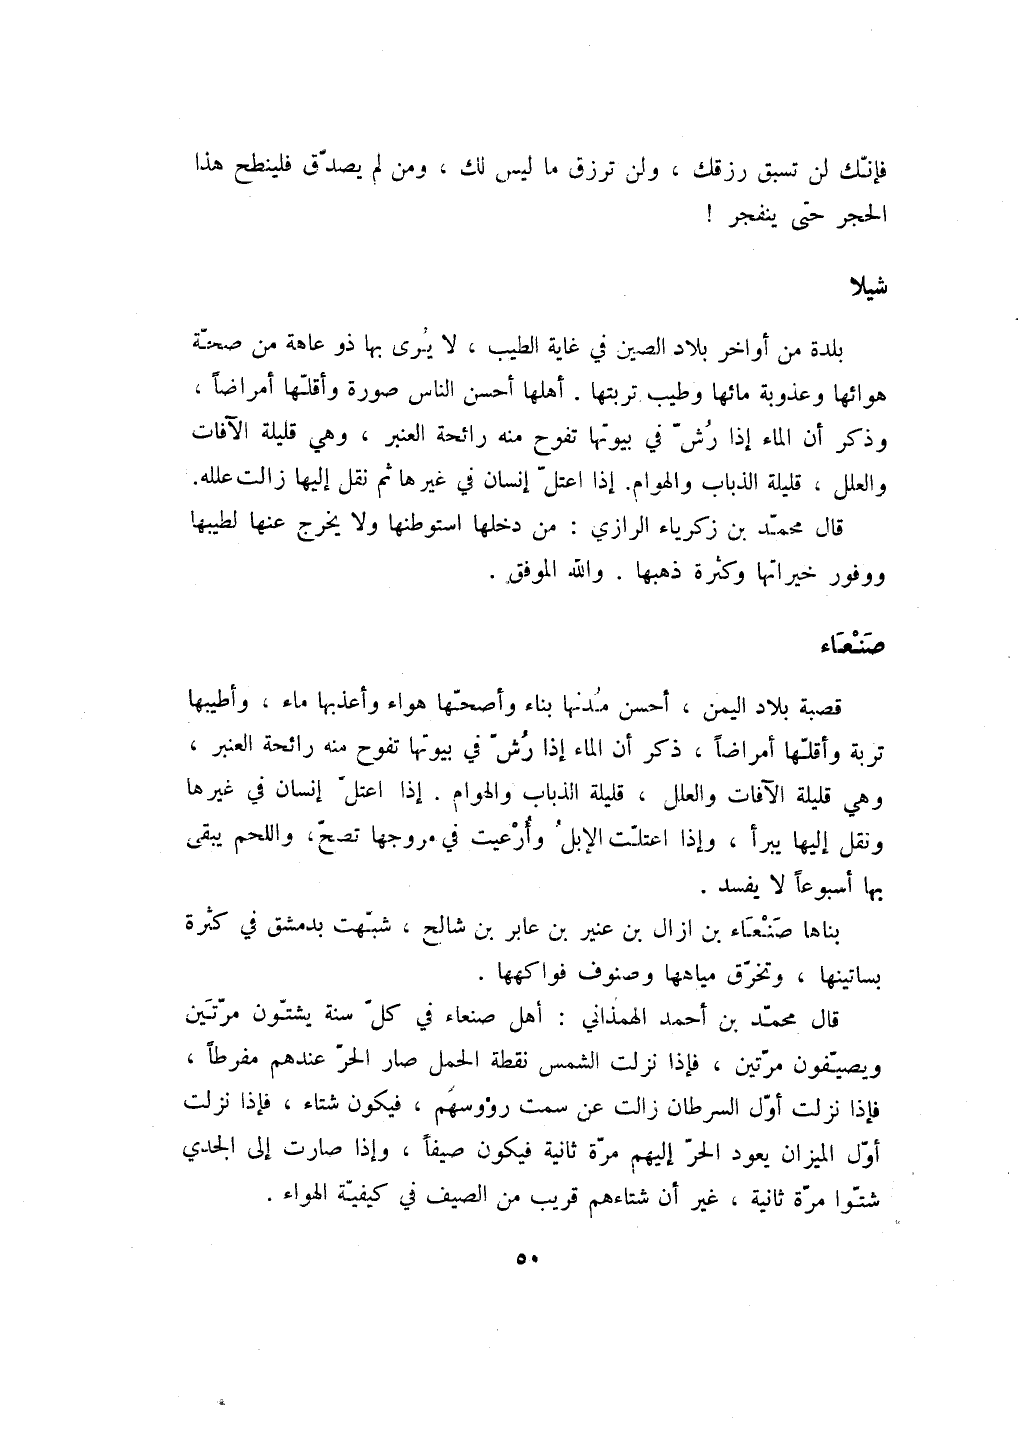 فإنّك لن تسبق رزقك ، ولن ترزق ما ليس لك ، ومن لم يصدّق فلينطح هذا
الحجر حتّى ينفجر !
شيلا
بلدة من أواخر بلاد الصين في غاية الطيب ، لا يُرى بها ذو عاهة من صحّة
هوائها وعذوبة مائها وطيب تربتها . أهلها أحسن الناس صورة وأقلّها أمراضاً ،
وذكر أن الماء إذا رُشّ في بيوتها تفوح منه رائحة العنبر ، وهي قليلة الآفات
والعلل ، قليلة الذباب والهوام. إذا اعتلّ إنسان في غيرها ثم نقل إليها زالت علله.
قال محمّد بن زكرياء الرازي : من دخلها استوطنها ولا يخرج عنها لطيبها
ووفور خيراتها وكثرة ذهبها . والله الموفق .
صَنْعَاء
قصبة بلاد اليمن ، أحسن مُدنها بناء وأصحّها هواء وأعذبها ماء ، وأطيبها
تربة وأقلّها أمراضاً ، ذكر أن الماء إذا رُشّ في بيوتها تفوح منه رائحة العنبر ،
وهي قليلة الآفات والعلل ، قليلة الذباب والهوام . إذا اعتلّ إنسان في غيرها
ونقل إليها يبرأ ، وإذا اعتلّت الإبلُ وأُرْعيت في مروجها تصحّ، واللحم يبقى
بها أسبوعاً لا يفسد .
بناها صَنْعَاء بن ازال بن عنير بن عابر بن شالح ، شبّهت بدمشق في كثرة
بساتينها ، وتخرّق مياهها وصنوف فواكهها .
قال محمّد بن أحمد الهمذاني : أهل صنعاء في كلّ سنة يشتّون مرّتَين
ويصيّفون مرّتين ، فإذا نزلت الشمس نقطة الحمل صار الحرّ عندهم مفرطاً ،
فإذا نزلت أوّل السرطان زالت عن سمت روٴوسهَم ، فيكون شتاء ، فإذا نزلت
أوّل الميزان يعود الحرّ إليهم مرّة ثانية فيكون صيفاً ، وإذا صارت إلى الجدي
شتّوا مرّة ثانية ، غير أن شتاءهم قريب من الصيف في كيفيّة الهواء .
٥٠